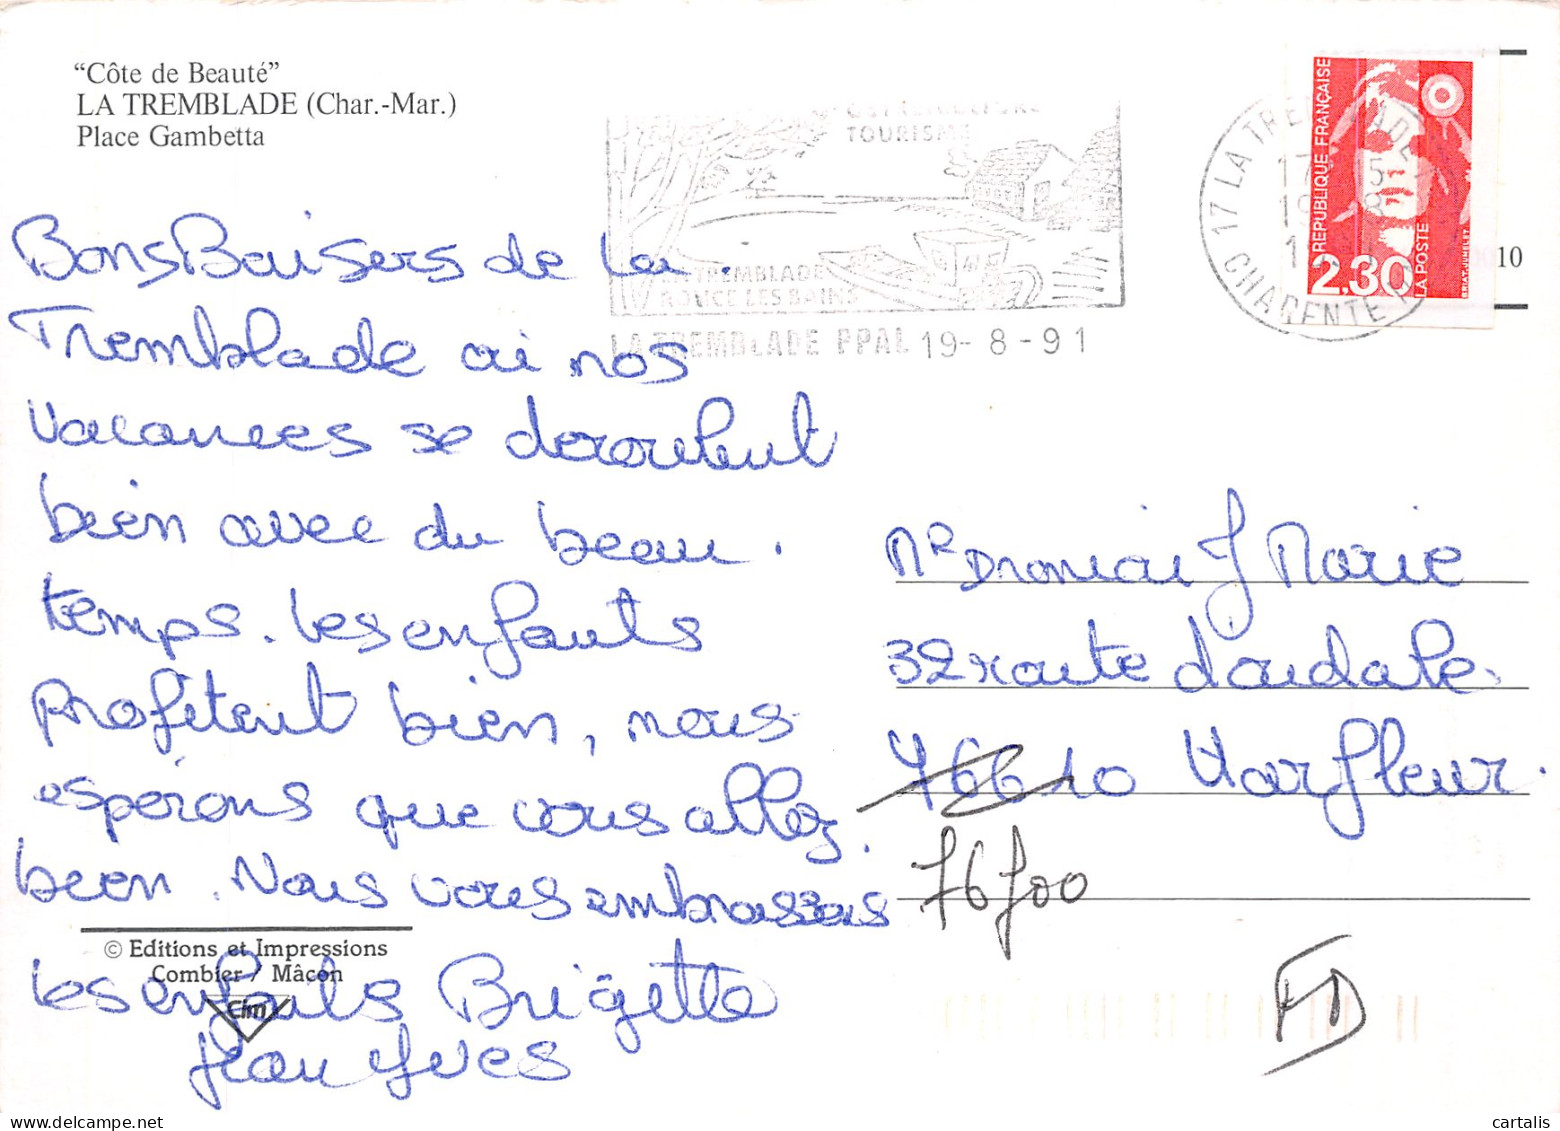 “Côte de Beauté”
LA TREMBLADE (Char.-Mar.)
Place Gambetta
OSTREICULTURE
TOURISME
LA TREMBLADE
RONCE LES BAINS
LA TREMBLADE PPAL 19-8-91
17 LA TREMBLADE
CHARENTE
REPUBLIQUE FRANÇAISE
2.30
LA POSTE
10
Bons Baisers de La
Tremblade ai nos
vacances se deroulent
bien avec du beau.
temps. Les enfants
profitent bien, nous
espérons que vous allez
bien. Nous vous embrassons
Les enfants Brigette
Jean Yves
Mr J Marie
32 route d'oudale.
76610 Harfleur.
76700
FD
© Editions et Impressions
Combier / Mâcon
Cim
cartalis